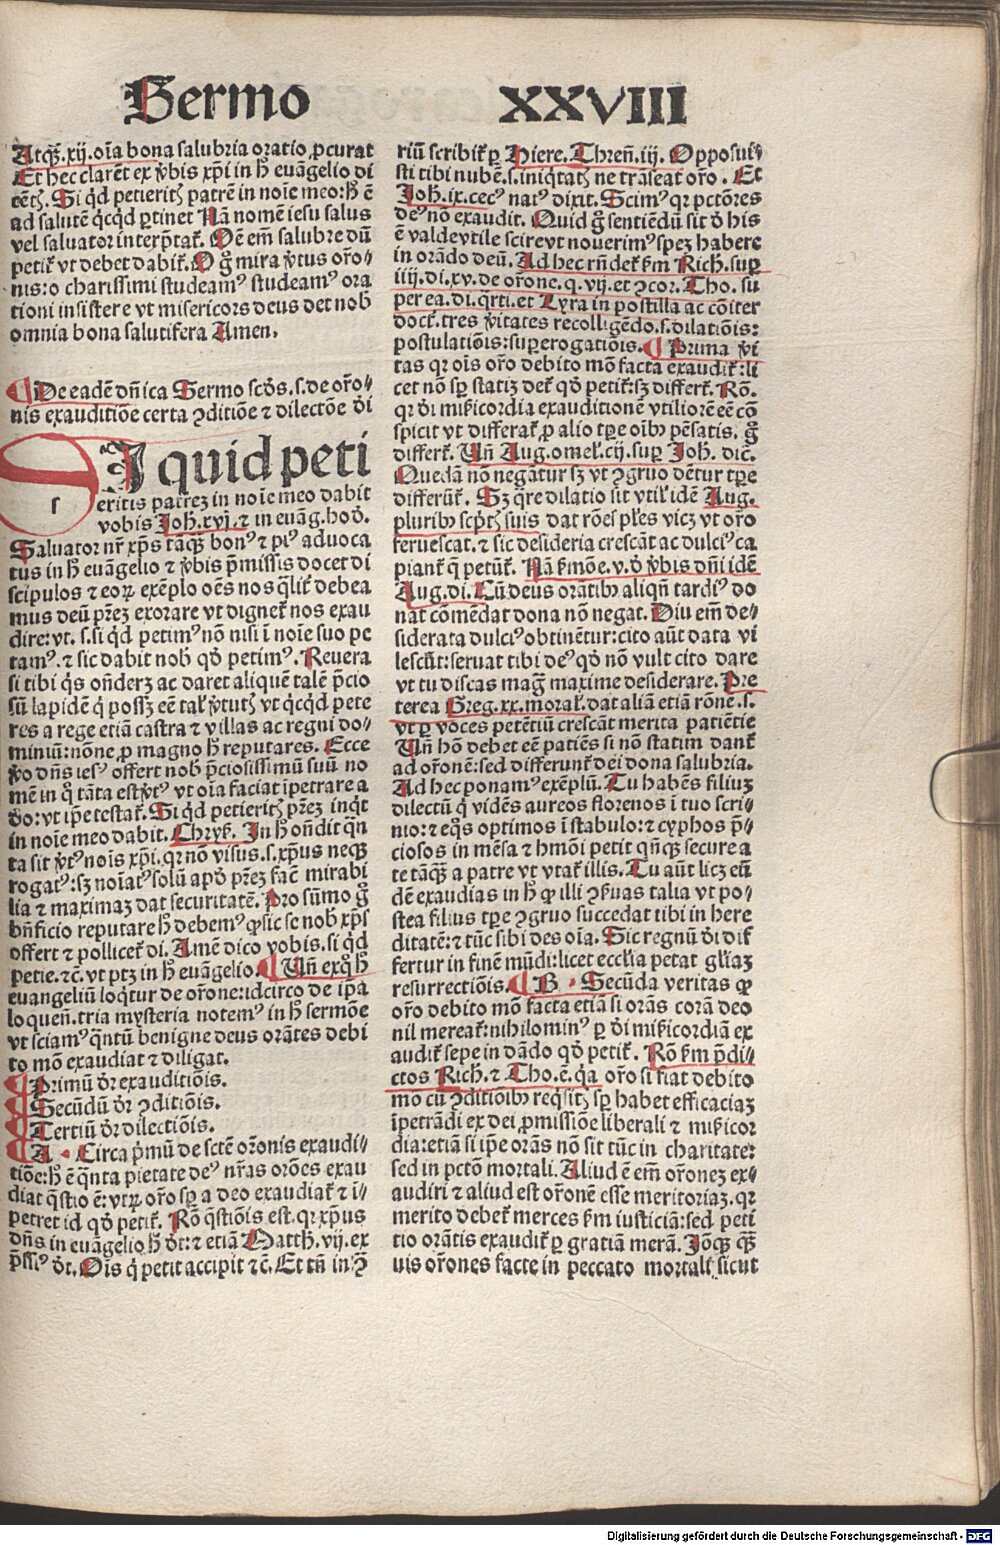 Sermo XXVIII
Atqȝ .xij. oīa bona salubria oratio ꝓcurat
Et hec clarēt ex v̄bis xp̄i in h̄ euāgelio di
cētꝭ. Si qͥd petieritꝭ patrē in noīe meo: h̄ ē
ad salutē qͥcqͥd ꝑtinet Nā nomē iesu salus
vel saluator interp̄tat̄. Oē em̄ salubre dū
petit̄ vt debet dabit̄. O gͦ mira v̓tus oro̅-
nis: o charissimi studeamꝰ studeamꝰ ora
tioni insistere vt misericors deus det nob̄
omnia bona salutifera Amen.
¶ De eadē dn̄ica Sermo scd̓s .s. de oro̅-
nis exauditiōe certa ꝯditiōe ⁊ dilectōe d̓i
SI quid peti
s
eritis patreȝ in noīe meo dabit
vobis Joh̄. xvj. ⁊ in euāg. hod̓.
Saluator nr̄ xp̄s tāqȝ̄ bonꝰ ⁊ piꝰ aduoca
tus in h̄ euāgelio ⁊ v̄bis p̄missis docet di
scipulos ⁊ eoꝝ exēplo oēs nos qͣlit̄ debea
mus deū pr̄eȝ exorare vt dignet̄ nos exau
dire: vt. s. si qͥd petimꝰ nō nisi ī noīe suo pe
tamꝰ. ⁊ sic dabit nob̄ qd̓ petimꝰ. Reuera
si tibi qͥs on̄dereȝ ac daret aliquē talē p̄cio
sū lapidē qͥ possȝ eē tal̄ v̓tutꝭ vt qͥcqͥd pete
res a rege etiā castra ⁊ villas ac regni do-
miniū: nōne ꝓ magno h̄ reputares. Ecce
v̓o dn̄s iesꝰ offert nob̄ p̄ciosissimū suū no
mē in qͦ tāta est v̓tꝰ vt oīa faciat īpetrare a
d̓o: vt ip̄e testat̄. Si qͥd petieritꝭ pr̄eȝ inqͥt
in noīe meo dabit. Chryß. In h̄ on̄dit qn̄
ta sit v̓tꝰ noīs xp̄i. qꝛ nō visus. s. xp̄us neqȝ
rogatꝰ: sȝ noīatꝰ solū apd̓ pr̄eȝ facē mirabi
lia ⁊ maximaȝ dat securitatē. Pro sūmo gͦ
bn̄ficio reputare h̄ debemꝰ ꝙ sic se nob̄ xp̄s
offert ⁊ pollicet̄ di. Amē dico vobis. si qͥd
petie. ⁊c̄. vt ptȝ in h̄ euāgelio. ¶ Un̄ ex qͦ h̄
euangeliū loqͥtur de oro̅ne: idcirco de ip̄a
loquen̄. tria mysteria notemꝰ in h̄ sermōe
vt sciamꝰ qͣntū benigne deus orātes debi
to mō exaudiat ⁊ diligat.
¶ Primū dr̄ exauditiōis.
¶ Secūdū dr̄ ꝯditiōis.
¶ Tertiū dr̄ dilectiōis.
¶ A · Circa p̄mū de sctē oro̅nis exaudi-
tiōe: h̄ ē qͣnta pietate deꝰ nr̄as orōes exau
diat qͣ̄stio ē: vtꝝ oro̅ sꝑ a deo exaudiat̄ ⁊ ī-
petret id qd̓ petit̄. Rō qͣ̄stiōis est. qꝛ xp̄us
dn̄s in euāgelio h̄ dt̄: ⁊ etiā Matth. vij. ex
p̄ssiꝰ dt̄. Ois qͥ petit accipit ⁊c̄. Et tn̄ in ꝯ
riū scribit̄ ꝑ Hiere. Thren̄. iij. Opposui-
sti tibi nubē. s. iniqͥtatꝭ ne trāseat oro̅. Et
Joh̄. ix. cecꝰ natꝰ dixit. Scimꝰ qꝛ pctōres
deꝰ nō exaudit. Quid gͦ sentiēdū sit d̓ his
ē valde vtile scire vt nouerimꝰ speȝ habere
in orādo deū. Ad hec rn̄det̄ ẜm Rich. suꝑ
iiij. di. xv. de oro̅ne. q. vij. et ꝯcor. Tho. su
per ea. di. qͣrti. et Lyra in postilla ac cōiter
doct̄. tres v̓itates recolligēdo. s. dilatiōis:
postulatiōis: superogatiōis. ¶ Prima v̓i
tas qꝛ oīs oro̅ debito mō facta exaudit̄: li
cet nō sꝑ statiȝ det̄ qd̓ petit̄: sȝ differt̄. Rō.
qꝛ d̓i mīcordia exauditionē vtiliorē eē cō
spicit vt differat̄ ꝓ alio tꝑe oībꝰ pēsatis. gͦ
differt̄. Un̄ Aug. omel̄. cij. suꝑ Joh̄. dic̄.
Quedā nō negātur sȝ vt ꝯgruo dētur tꝑe
differūt̄. Sȝ qͣre dilatio sit vtil̓ idē Aug.
pluribꝰ scp̄tꝭ suis dat rōes ples vicȝ vt oro̅
feruescat. ⁊ sic desideria crescāt ac dulciꝰ ca
piant̄ q̄ petūt̄. Nā ẜmōe. v. d̓ v̓bis dn̄i idē
Aug. di. Cū deus orātibꝰ aliqn̄ tardiꝰ do
nat cōmēdat dona nō negat. Diu em̄ de-
siderata dulciꝰ obtinētur: cito aūt data vi
lescūt: seruat tibi deꝰ qd̓ nō vult cito dare
vt tu discas mag̓ maxime desiderare. Pre
terea Greg. xx. moral̄. dat aliā etiā rōne. s.
vt ꝑ voces petētiū crescāt merita patiētie
Un̄ hō debet eē patiēs si nō statim dant̄
ad oro̅nē: sed differunt̄ dei dona salubria.
Ad hec ponamꝰ exēplū. Tu habēs filiuȝ
dilectū qͥ vidēs aureos florenos ī tuo scri-
nio: ⁊ eqͦs optimos ī stabulo: ⁊ cyphos p̄-
ciosos in mēsa ⁊ hmōi petit qn̄qȝ secure a
te tāqȝ̄ a patre vt vtat̄ illis. Tu aūt licȝ eū
dē exaudias in h̄ ꝙ illi ꝯẜuas talia vt po-
stea filius tꝑe ꝯgruo succedat tibi in here
ditatē: ⁊ tūc sibi des oīa. Sic regnū d̓i dif
fertur in finē mūdi: licet ecclīa petat gl̓iaȝ
resurrectiōis. ¶ B · Secūda veritas ꝙ
oro̅ debito mō facta etiā si orās corā deo
nil mereat̄: nihilominꝰ ꝑ d̓i mīcordiā ex
audit̄ sepe in dādo qd̓ petit̄. Rō ẜm p̄di-
ctos Rich. ⁊ Tho. ē. qꝛ oro̅ si fiat debito
mō cū ꝯditiōibꝰ reqͥsitꝭ sꝑ habet efficaciaȝ
īpetrādi ex dei ꝓmissiōe liberali ⁊ mīcor
dia: etiā si ip̄e orās nō sit tūc in charitate:
sed in pctō mortali. Aliud ē em̄ oro̅neȝ ex-
audiri ⁊ aliud est oro̅nē esse meritoriaȝ. qꝛ
merito debet̄ merces ẜm iusticiā: sed peti
tio orātis exaudit̄ ꝑ gratiā merā. Jōqȝ qȝ̄
uis oro̅nes facte in peccato mortali sicut
Digitalisierung gefördert durch die Deutsche Forschungsgemeinschaft - DFG